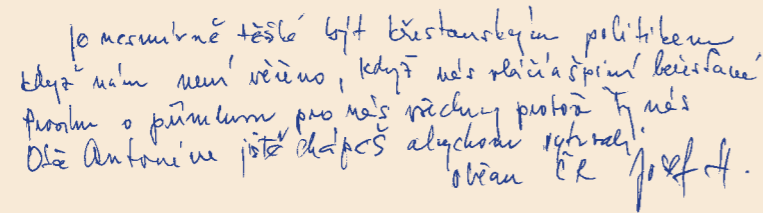 Je nesmírně těžké být křestanským politikem
když nám není věřeno, když nás vláčí a špiní bezestaně
Prosím o přímluvu pro nás všechny protože Ty nás
Otče Antoníne jistě chápeš abychom vytrvali.
občan ČR Josef H.